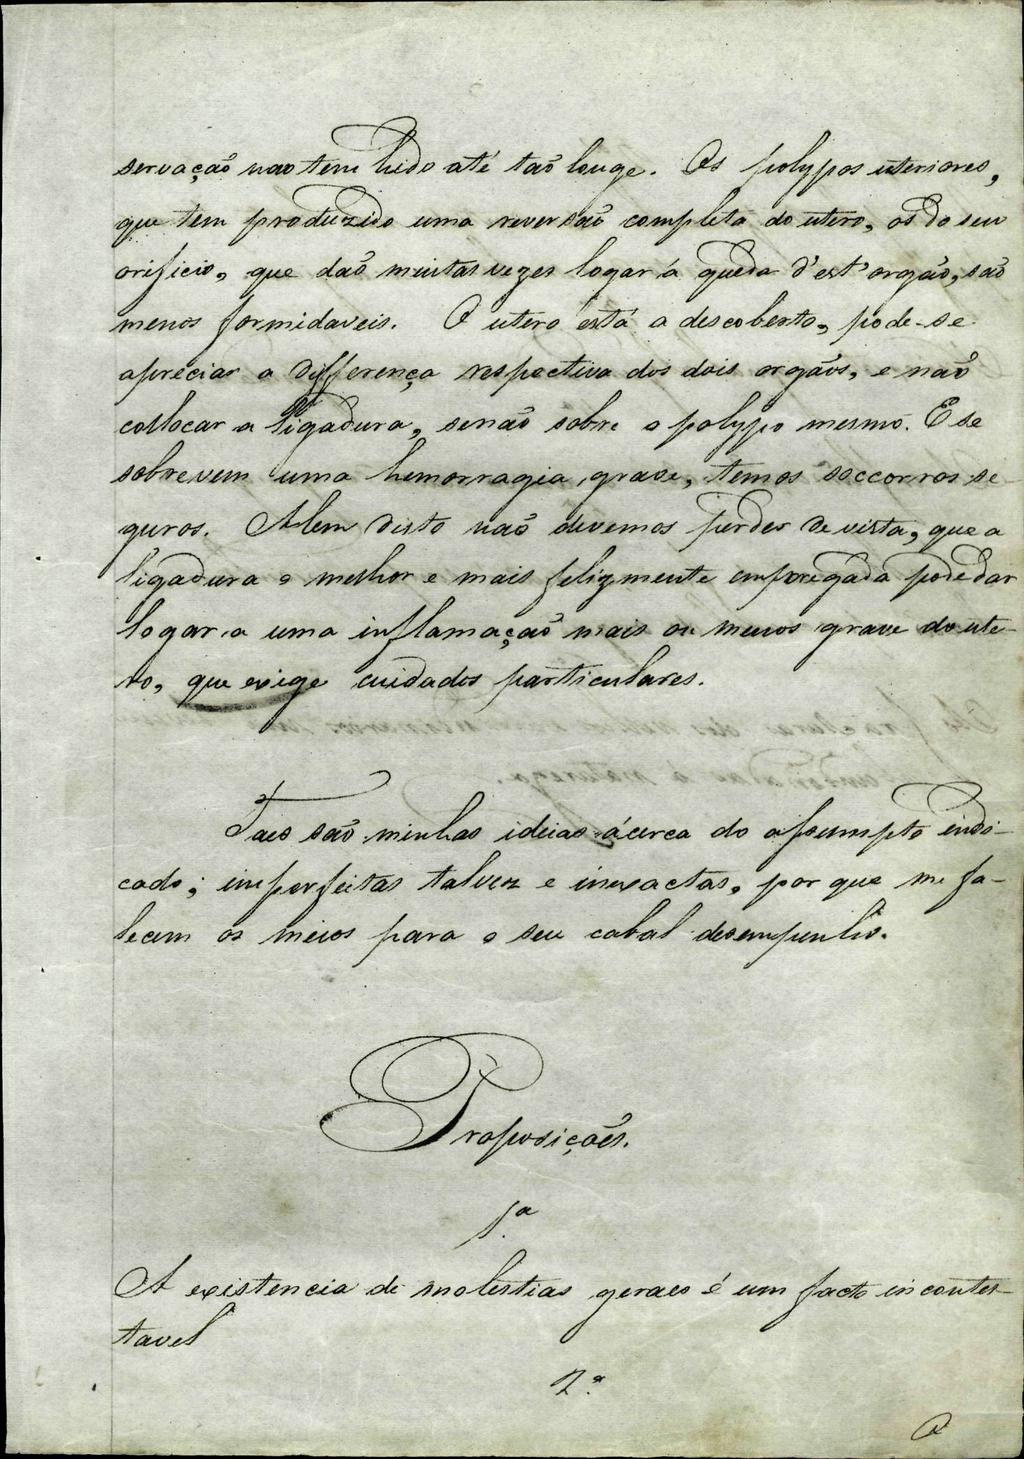 servação não tem hido até tão longe. Os polypos uteriores,
que tem produzido uma reversão completa do utero, os do seu
orificio, que dão muitas vezes logar á queda d'est'orgão, são
menos formidaveis. O utero está a descoberto, pode-se
apreciar a differença respectiva dos dois orgãos, e não
collocar a ligadura, senão sobre o polypo mesmo. E se
sobrevem uma hemorragia grave, temos soccorros se-
guros. Alem disto não devemos perder de vista, que a
ligadura o melhor e mais felizmente empregada pode dar
logar a uma inflamação mais ou menos grave do ute-
ro, que exige cuidados particulares.
Taes são minhas ideias ácerca do assumpto indi-
cado; imperfeitas talvez e inexactas, por que me fa-
lecem os meios para o seu cabal desempenho.
Proposições.
1.ª
A existencia de molestias geraes é um facto incontes-
tavel
2.ª